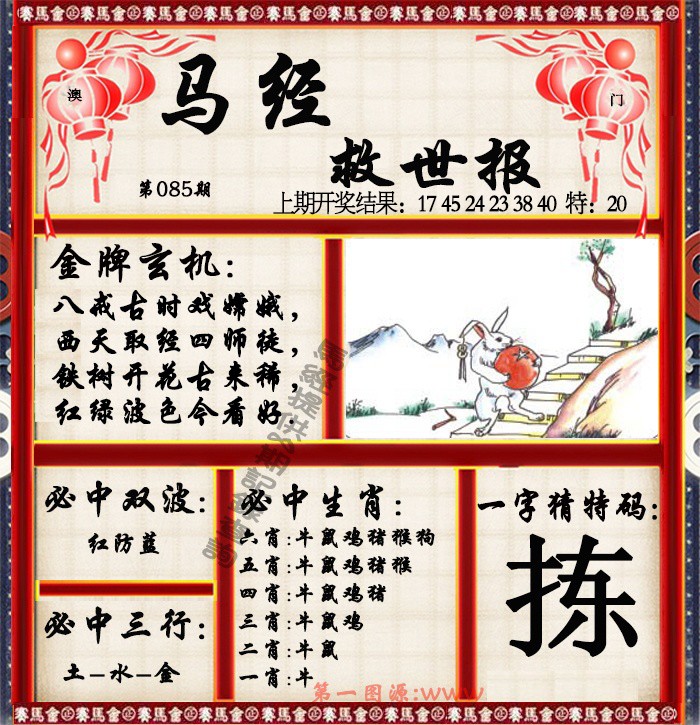 賽馬會 賽馬會 賽馬會 賽馬會 賽馬會 賽馬會 賽馬會 賽馬會 賽馬會
澳
门
马经
救世报
第085期
上期开奖结果：17 45 24 23 38 40 特：20
金牌玄机：
八戒古时戏嫦娥，
西天取经四师徒，
铁树开花古来稀，
红绿波色今看好.
必中双波：
红防蓝
必中三行：
土-水-金
必中生肖：
六肖:牛鼠鸡猪猴狗
五肖:牛鼠鸡猪猴
四肖:牛鼠鸡猪
三肖:牛鼠鸡
二肖:牛鼠
一肖:牛
一字猜特码:
拣
第一图源:www